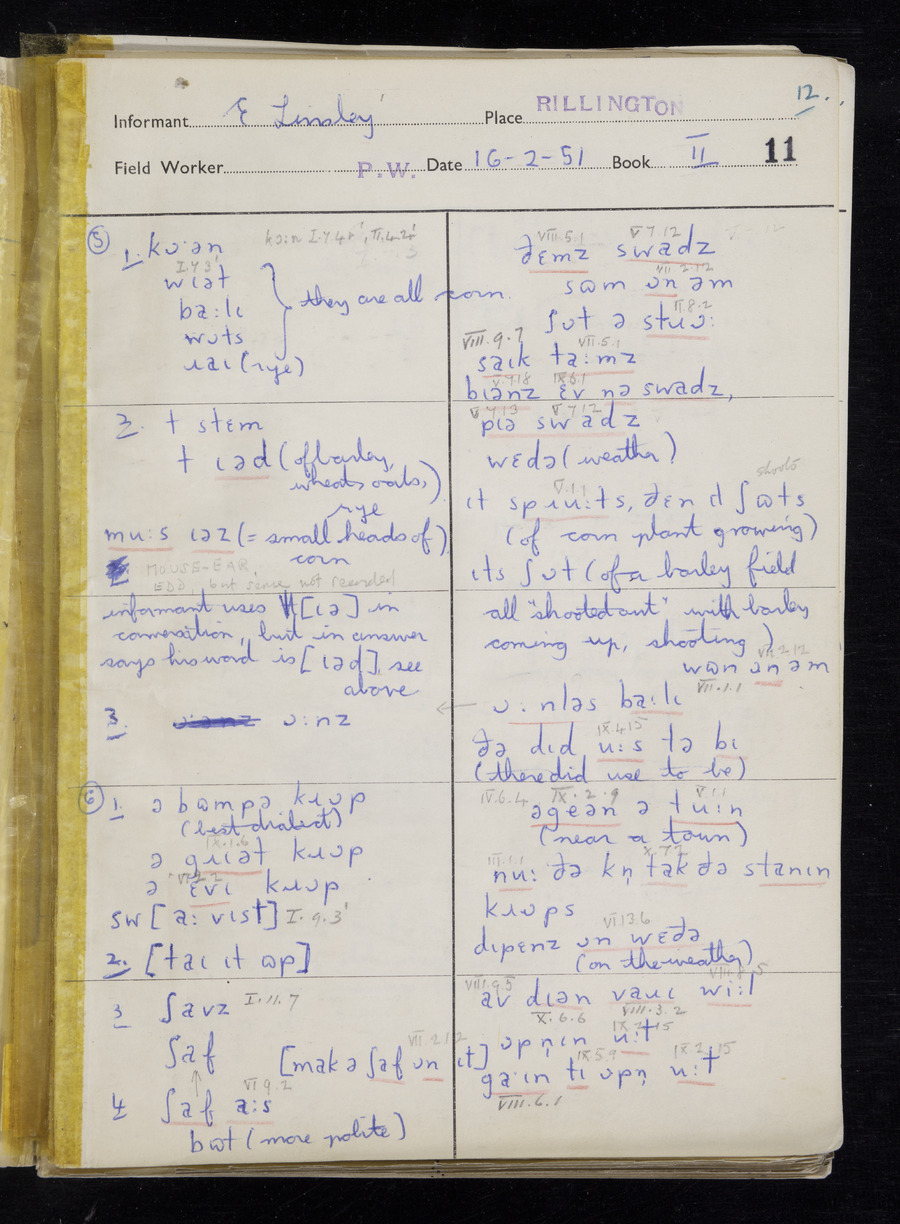 12.
Informant E Linsley Place RILLINGTON
Field Worker P.W. Date 16-2-51 Book II 11
5 1. kɔ·ən
I.7.3'
wɪət
ba:lɪ
wɒts
ɹaɪ (rye)
they are all corn.
2. t stɛm
t ɪəd (of barley,
wheats, oats,)
rye
mu:s ɪəz (= small heads of)
corn
MOUSE-EAR,
EDD, but sense not recorded
informant uses [ɪə] in
conversation, but in answer
says his word is [ɪəd], see
above
3. ɒ:nz
6 1. ə bɷmpə kɹɒp
(best dialect)
IX.1.6
ə gɹɪət kɹɒp
ə ɛvɪ kɹɒp
sw [a:vɪst] I.9.3'
2. [taɪ ɪt ɷp]
3 ʃavz I.11.7
ʃaf
[mak ə ʃaf ɒn ɪt]
VI 9.2
4 ʃaf a:s
bɷt (more polite)
VIII.5.1 V 7 12
ðɛmz swadz
VII.2.12
sɷm ɒn əm
II.8.2
ʃɒt ə stɹɒ:
VIII.9.7 VII.5.1
saɪk ta:mz
V.7.18 IX.6.1
bɪənz ɛv nə swadz,
V 7 13 V 7 12
pɪə swadz
wɛdə (weather)
shoots
V.1.1
ɪt spɹu:ts, ðɛn ɪt ʃɷts
(of corn plant growing)
ɪts ʃɒt (of a barley field
all "shooted out" with barley
coming up, shooting)
VII.2.12
wɷn ɒn əm
VII.1.1
ɒ:nləs ba:lɪ
IX.4.15
ðə dɪd u:s tə bɪ
(there did use to be)
IV.6.4 IX.2.9 V.1.1
əgeən ə tu:n
(near a town)
III.1.1 X.7.2
nu: ðə kn̩ tak ðə stanɪn
kɹɒps
VI 13.6
dɪpɛnz ɒn wɛðə
(on the weather)
VIII.9.5 VIII.8.5
av dɪən vaɹɪ wi:l
X.6.6 VIII.3.2
IX.2.15
ɒpn̩ɪn u:t
IX.5.9 IX 2 15
ga·ɪn tɪ ɒpn̩ u:t
VIII.6.1